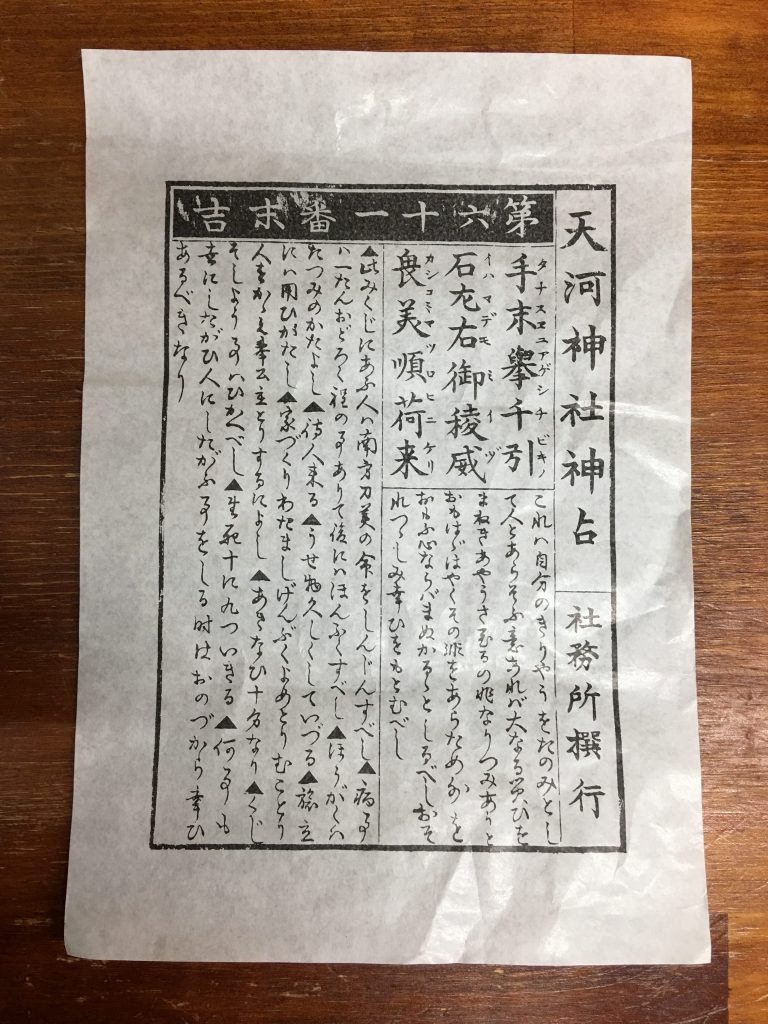 天河神社神占
社務所撰行
第六十一番末吉
手末擧千引
タナスヱアゲシチビキノ
石尣右御稜威
イハマデモミイヅ
畏美順荷来
カシコミマツロヒニケリ
これハ自分のきりやうをたのみとし
て人とあらそふ意あれバ大なるわざはひを
まねきあやうさ至るの兆なりつみありと
おもはゞはやくその非をあらためかみを
おもふ心ならバまぬかるゝとしるべしおそ
れつゝしみ幸ひをもとむべし
▲此みくじにあふ人ハ南方刀美の命をしんじんすべし▲病事
ハ一たんおどろく程の事ありて後にハほんふくすべし▲ほうがくハ
たつみのかたよし▲待人来る▲うせ物久しくしていづる▲旅立
にハ用ひがたし▲家づくりわたましげんぶくよめとりむことり
人をかゝえ奉公立とりするによし▲あきなひ十分なり▲くじ
そしようの事ハひかへべし▲生死十に九ついきる▲何事も
世にしたがひ人にしたがふ事をしる時はおのづから幸ひ
あるべきなり